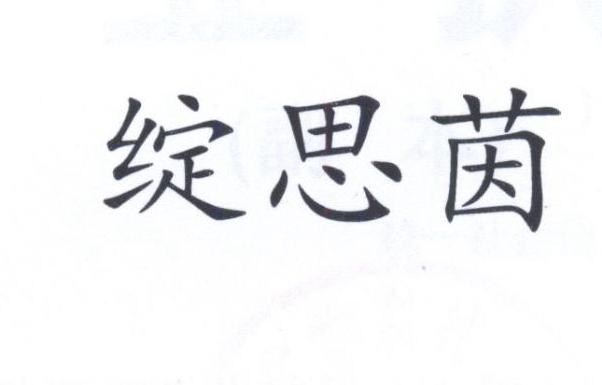 绽思茵